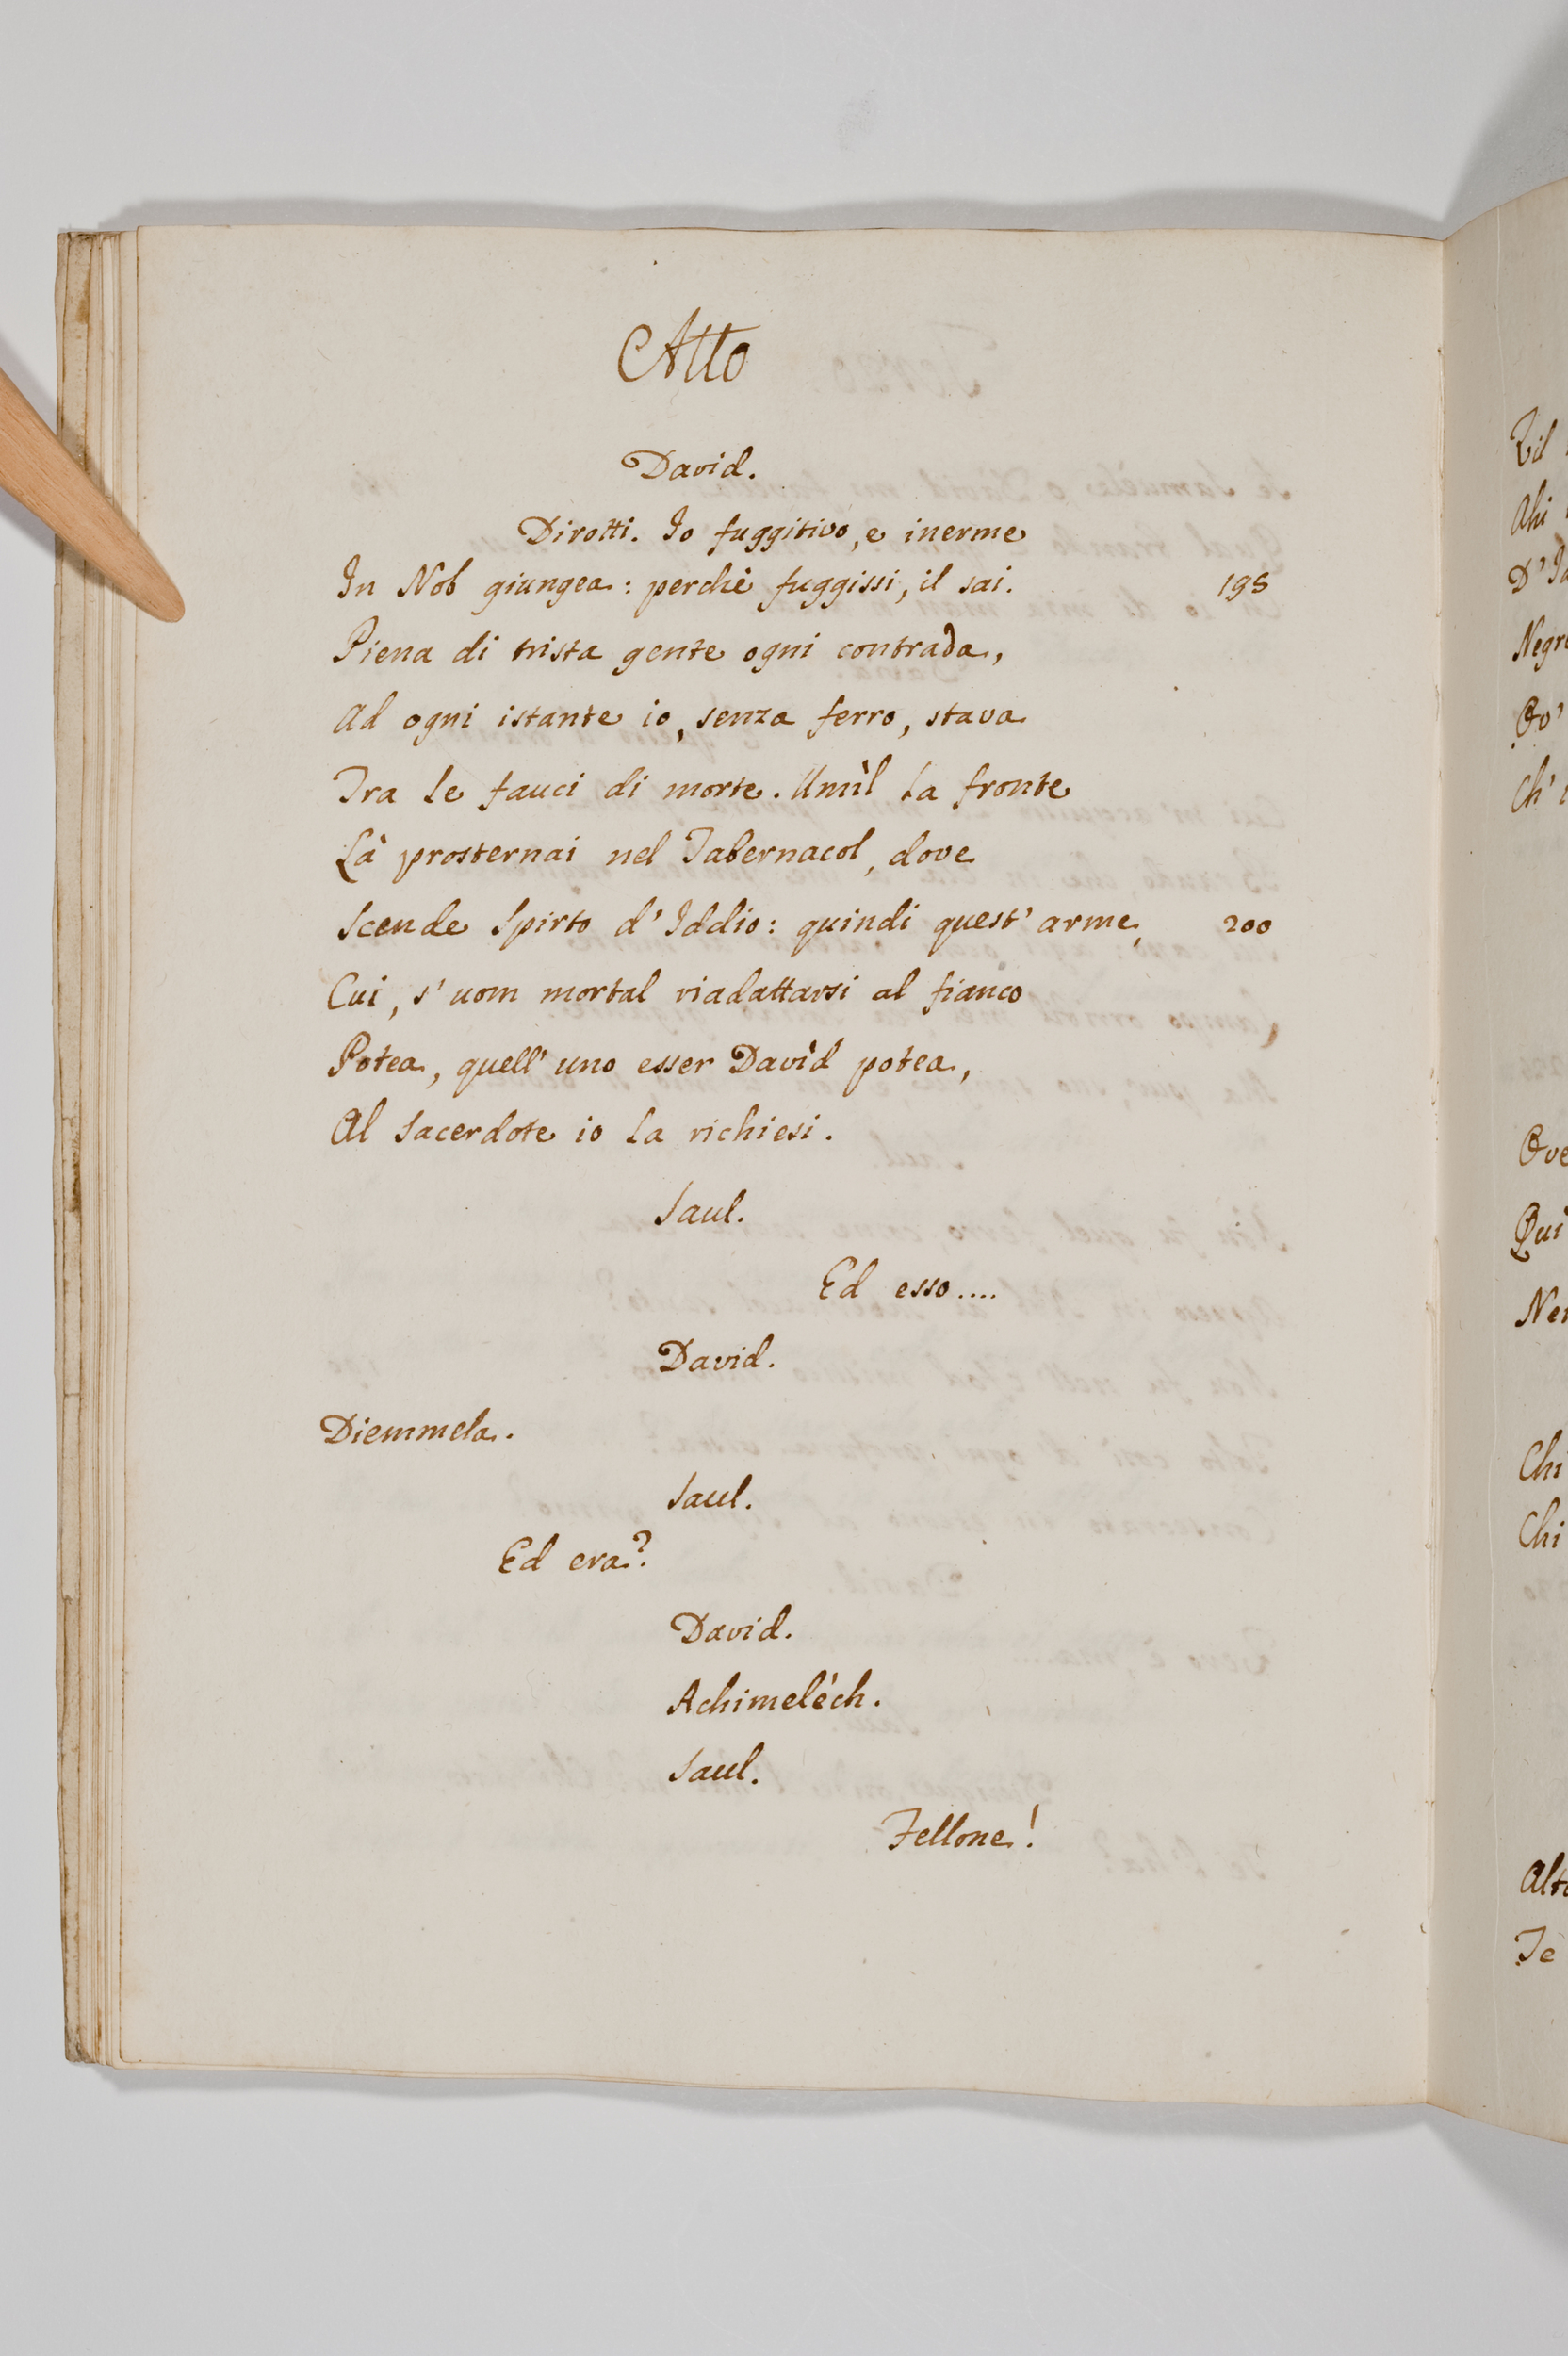 Atto
David.
Dirotti. Io fuggitivo, e inerme
In Nob giungea: perchè fuggissi, il sai. 195
Piena di trista gente ogni contrada,
Ad ogni istante io, senza ferro, stava
Tra le fauci di morte. Umìl la fronte
Là prosternai nel Tabernacol, dove
Scende Spirto d'Iddio: quindi quest'arme, 200
Cui, s'uom mortal riadattarsi al fianco
Potea, quell'uno esser Davìd potea,
Al Sacerdote io la richiesi.
Saul.
Ed esso....
David.
Diemmela.
Saul.
Ed era?
David.
Achimeléch.
Saul.
Fellone!
Ahi
D'
Negr
Ov'
Ch'
Ove
Qui
Chi
Chi
Alt